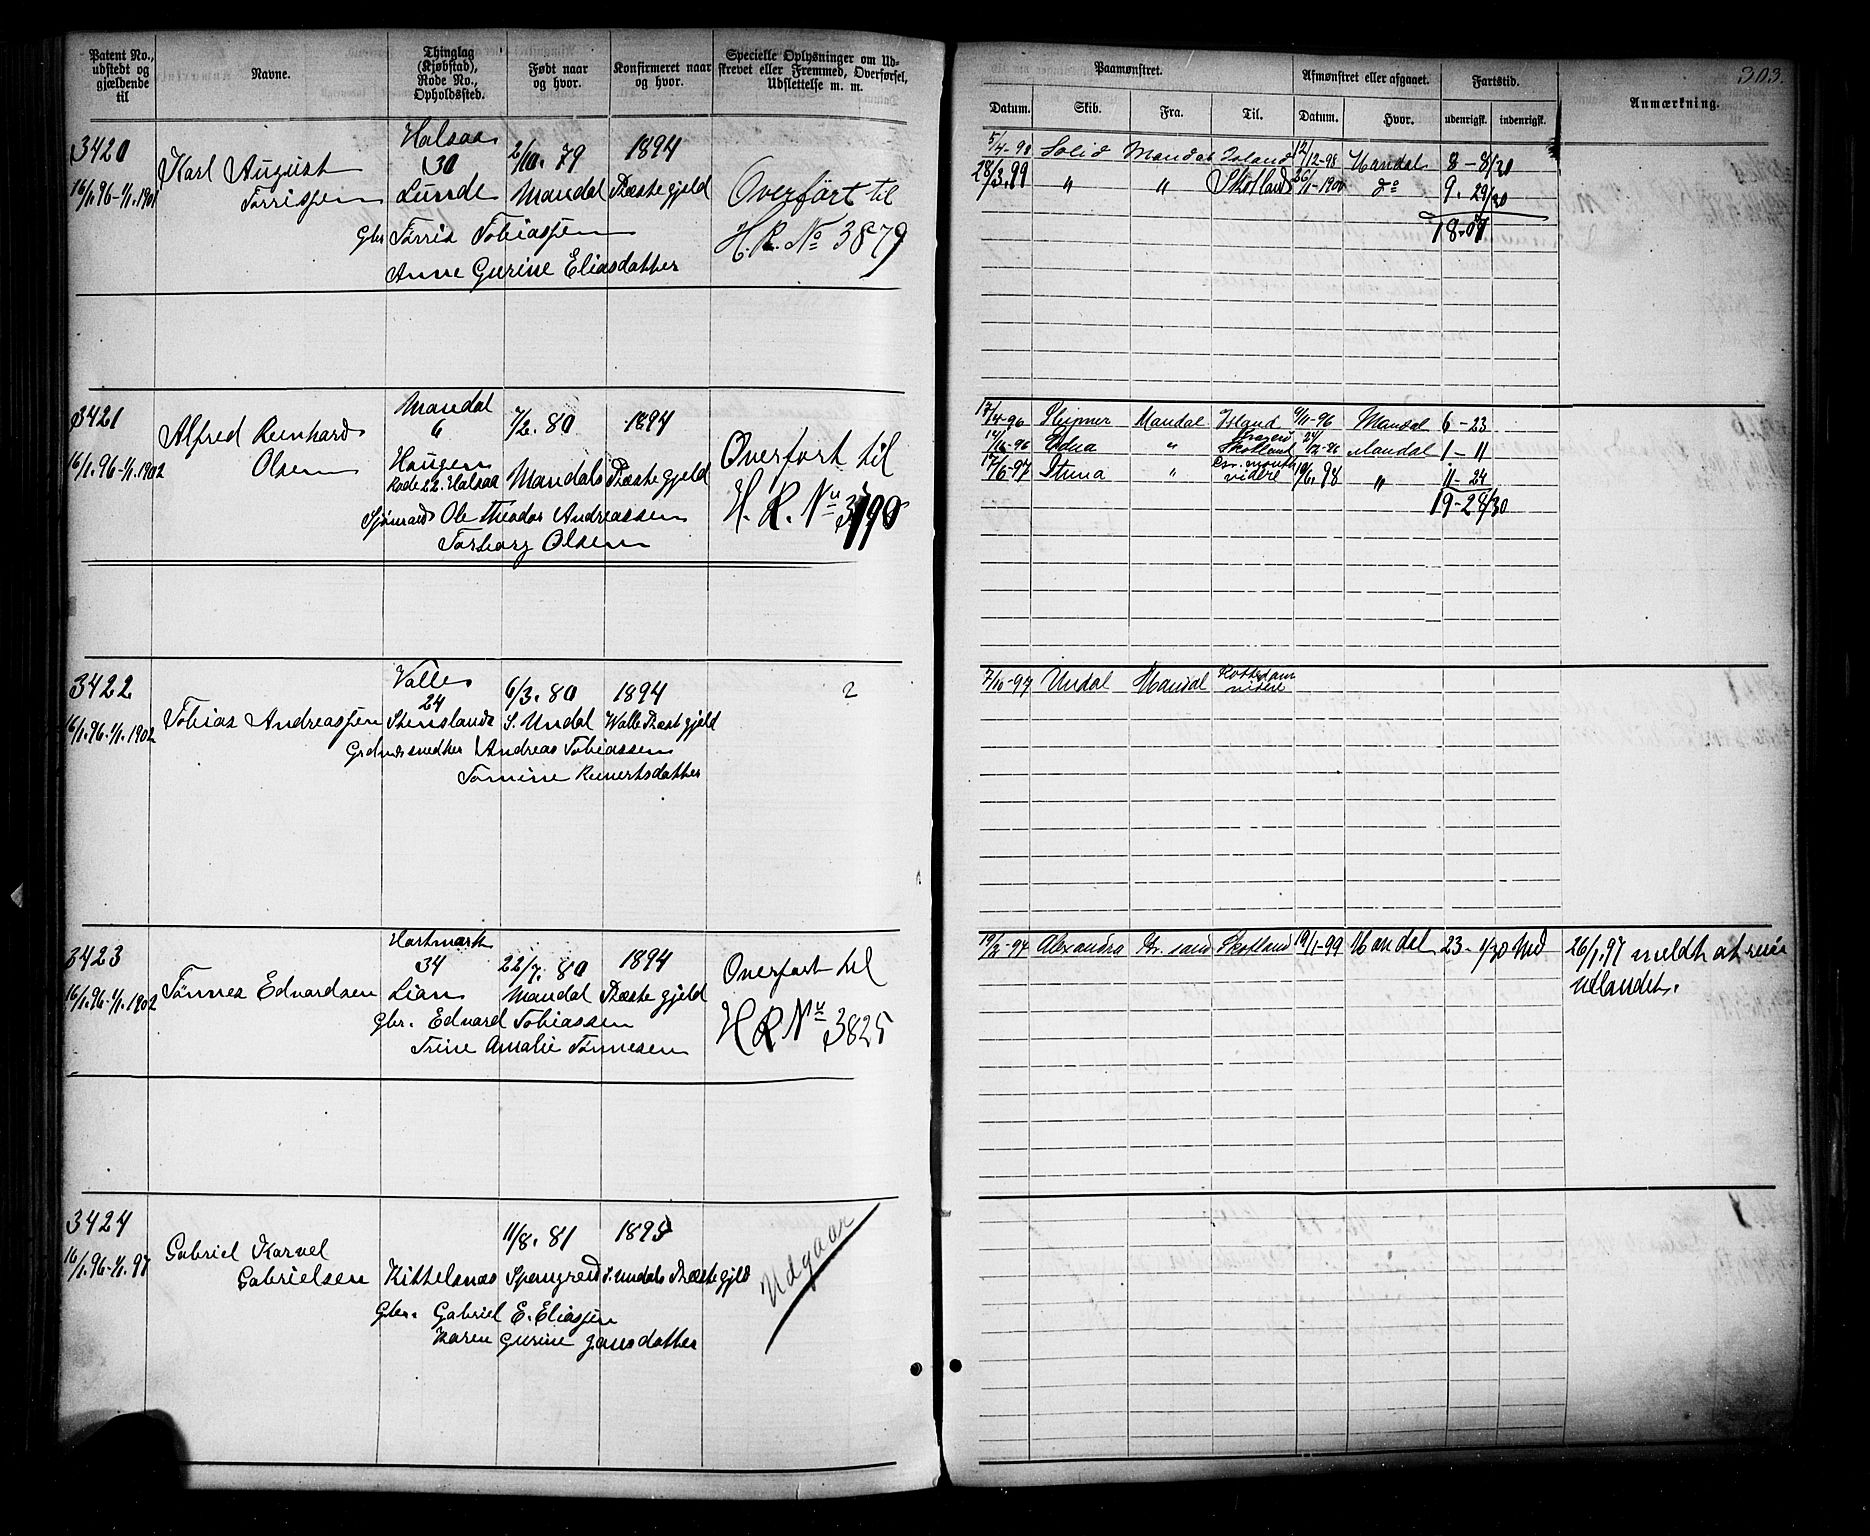 303.
Patent No., udstedt og gjældende til
Navne.
Thinglag (Kjøbstad), Rode No., Opholdssted.
Født naar og hvor.
Konfirmeret naar og hvor.
Specielle Oplysninger om Udskrevet eller Fremmed, Overførsel, Udslettelse m. m.
Paamønstret.
Afmønstret eller afgaaet.
Fartstid.
Anmærkning.
Datum. Skib. Fra. Til. Datum. Hvor. udenrigsk. indenrigsk.
3420
16/1.96-1/1.1901
Karl August
Tørrissen
Halsaa
30
Lunde
2/10. 79
Mandal
1894
Præstegjeld
Gbr Tørris Tobiassen
Anne Gurine Eliasdatter
Overført til
H.R. No 3879
5/4-98 Solid Mandal Island 12/12-98 Mandal 8 - 8/30
28/3.99 " " Skotland 26/1-1900 do 9. 29/30
18-07
3421
16/1.96-1/1.1902
Alfred Reinhard
Olsen
Mandal
6
Haugen
Rode 22. Halsaa
7/2. 80
Mandals
1894
Præstegjeld
Sjømand Ole Theodor Andreassen
Torborg Olsen
Overført til
H. R. Nu 3790
17/4-96 Sleipner Mandal Island 9/11-96 Mandal 6-23
14/11-96 Edna " Skotland 24/12-96 Mandal 1-11
17/6-97 Stina " videre 10/6.98 " 11-24
19-28/30
3422
16/1.96-1/1.1902
Tobias Andreassen
Valle
24
Stensland
6/3. 80
S. Undal
1894
Walle Præstgjeld
?
Grdmd Andreas Tobiassen
Tomine Reinertsdatter
7/10-97 Undal Mandal Rotterdam videre
3423
16/1.96-1/1.1902
Tønnes Edvardsen
Hartmark
34
Lian
22/7. 80
Mandal
1894
Præstegjeld
Gbr. Edvard Tobiassen
Trine Amalie Tønnesen
Overført til
H R Nu 3825
19/2-97 Alexandra Kr. sand Skotland 19/1-99 Mandal 23-1/30 Md
26/1.97 meldt at reise
Udlandet.
3424
16/1.96-1/1.97
Gabriel Karnel
Gabrielsen
Kittelsnæs
11/8. 81
Spangreid
1895
S. Undals Præstegjeld
Gbr. Gabriel E. Eliassen
Karen Gurine Jansdatter
Udgaar